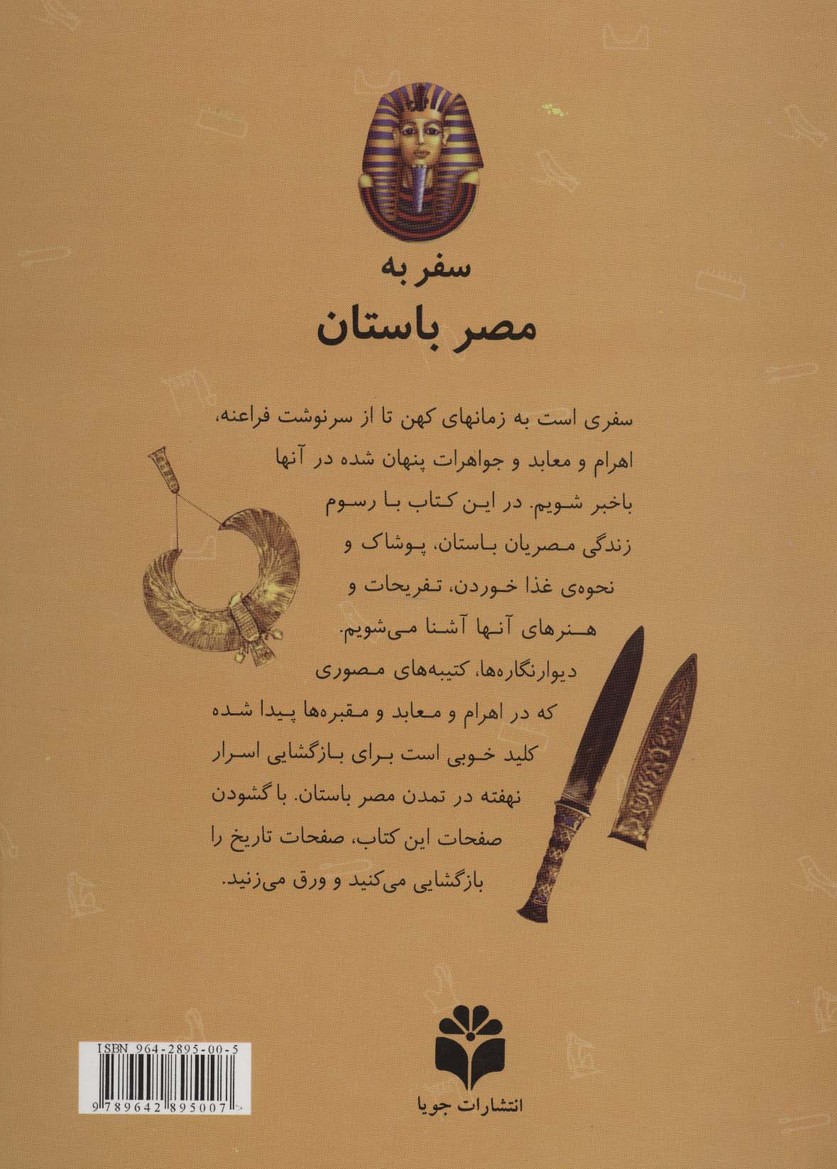 سفر به
مصر باستان
سفری است به زمانهای کهن تا از سرنوشت فراعنه،
اهرام و معابد و جواهرات پنهان شده در آنها
باخبر شویم. در این کتاب با رسوم
زندگی مصریان باستان، پوشاک و
نحوه‌ی غذا خوردن، تفریحات و
هنرهای آنها آشنا می‌شویم.
دیوارنگاره‌ها، کتیبه‌های مصوری
که در اهرام و معابد و مقبره‌ها پیدا شده
کلید خوبی است برای بازگشایی اسرار
نهفته در تمدن مصر باستان. با گشودن
صفحات این کتاب، صفحات تاریخ را
بازگشایی می‌کنید و ورق می‌زنید.
انتشارات جویا
ISBN 964-2895-00-5
9 789642 895007 >